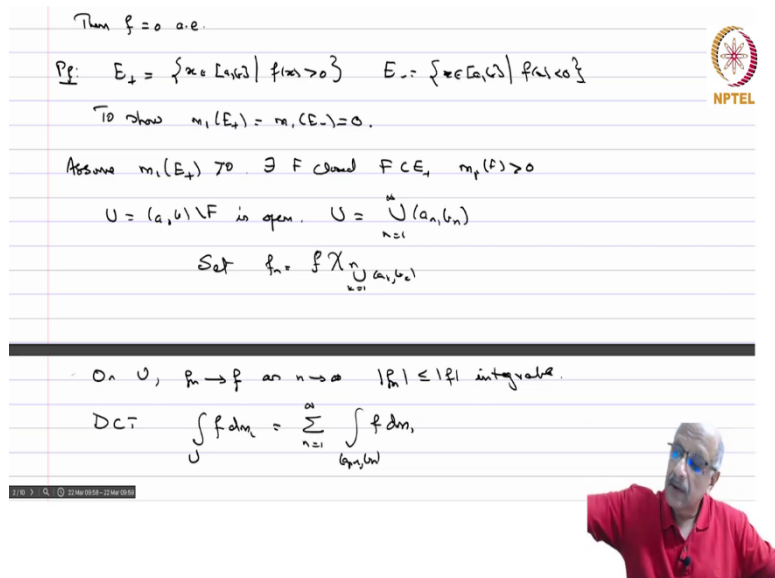 Then f = 0 a.e.
NPTEL
Pf: E₊ = {x ∈ [a,b] | f(x) > 0}   E₋ = {x ∈ [a,b] | f(x) < 0}
To show m₁(E₊) = m₁(E₋) = 0.
Assume m₁(E₊) > 0. ∃ F closed F ⊂ E₊ m₁(F) > 0
U = (a,b) \ F is open. U = ∪_{n=1}^{∞} (aₙ, bₙ)
Set fₙ = f χ_{∪_{k=1}^{n} (aₖ, bₖ)}
On U, fₙ → f as n → ∞ |fₙ| ≤ |f| integrable.
DCT ∫_U f dm₁ = Σ_{n=1}^{∞} ∫_{(aₙ, bₙ)} f dm₁
2/10 22 Mar 09:58 - 22 Mar 09:59